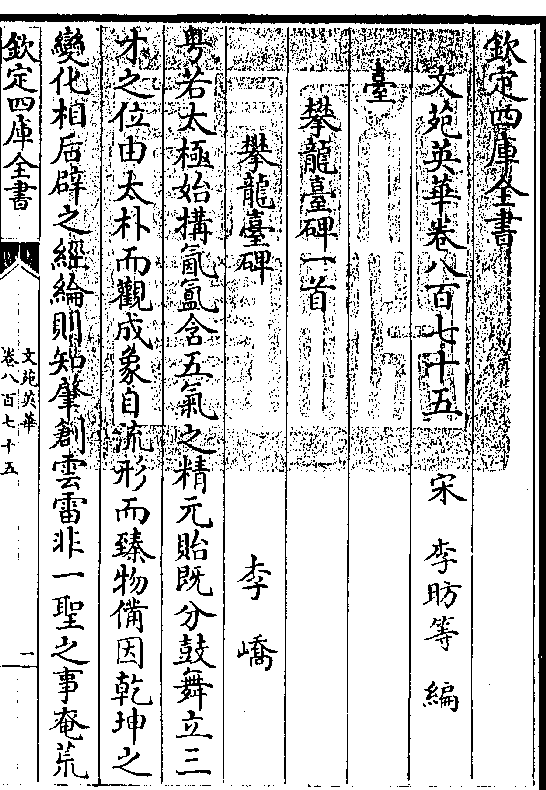 欽定四庫全書
文苑英華卷八百七十五　宋　李昉等　編
臺
攀龍臺碑一首
攀龍臺碑　李嶠
粤若太極始搆氤氲含五氣之精元貽既分鼓舞立三
才之位由太朴而觀成象自流形而臻物備因乾坤之
變化相后辟之經綸則知肇創雲雷非一聖之事奄荒
欽定四庫全書
文苑英華
卷八百七十五